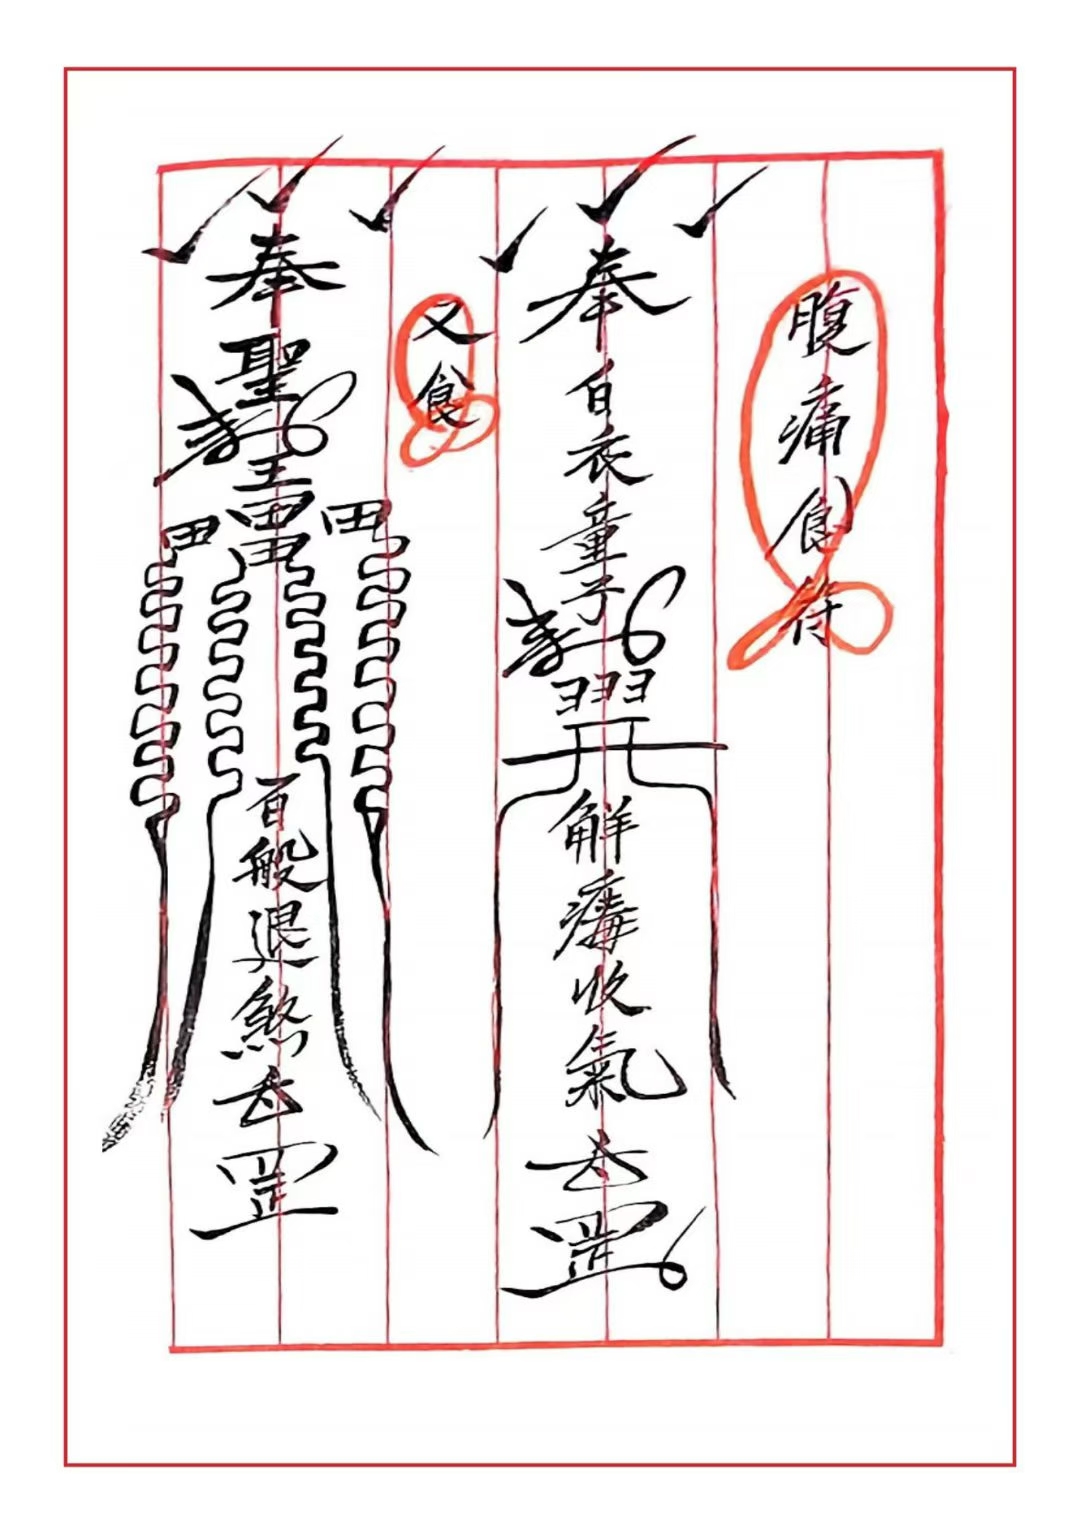 腹痛食符
奉白衣童子
解毒收氣去罡
又食
奉聖
主
百般退煞去罡